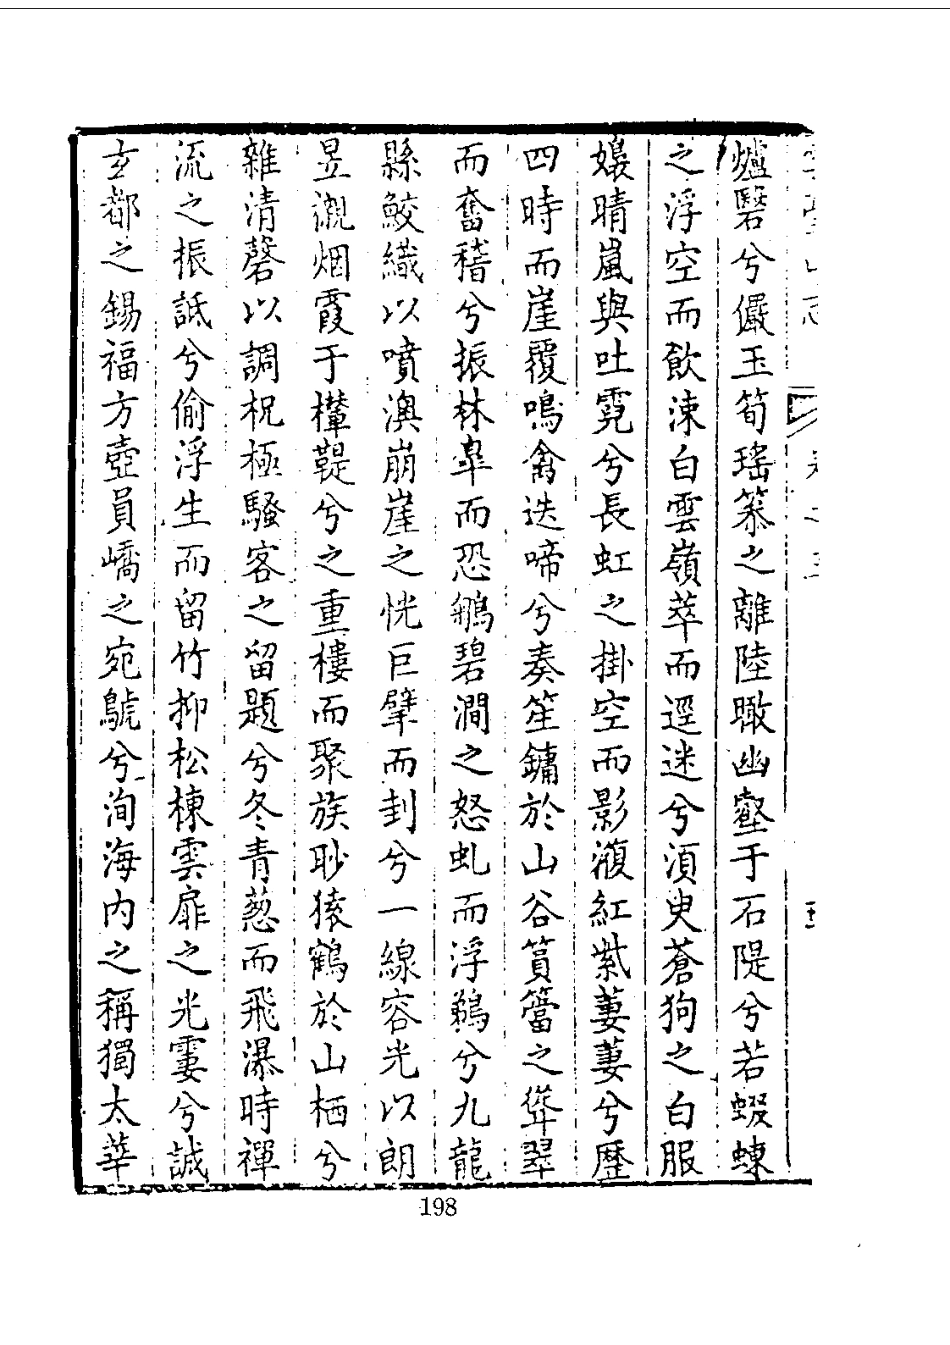 爐翳兮儼玉筍瑤篸之離陸瞰幽壑于石隄兮若蝃蝀
之浮空而飲涑白雲嶺萃而逕迷兮須臾蒼狗之白服
嬝晴嵐與吐霓兮長虹之掛空而影澓紅紫萋萋兮歷
四時而崖覆鳴禽迭啼兮奏笙鏞於山谷篔簹之聳翠
而奮稽兮振林臯而恐鵃碧澗之怒虬而浮鵜兮九龍
縣鮫織以噴澳崩崖之恍巨擘而刲兮一線容光以朗
昱瀙烟霞于欅鞮兮之重樓而聚族眇猿鶴於山栖兮
雜清磬以調柷極騷客之留題兮冬青葱而飛瀑時禪
流之振詆兮偷浮生而留竹抑松棟雲扉之光霎兮誠
玄都之錫福方壺員嶠之宛䖘兮洵海內之稱獨太華
198